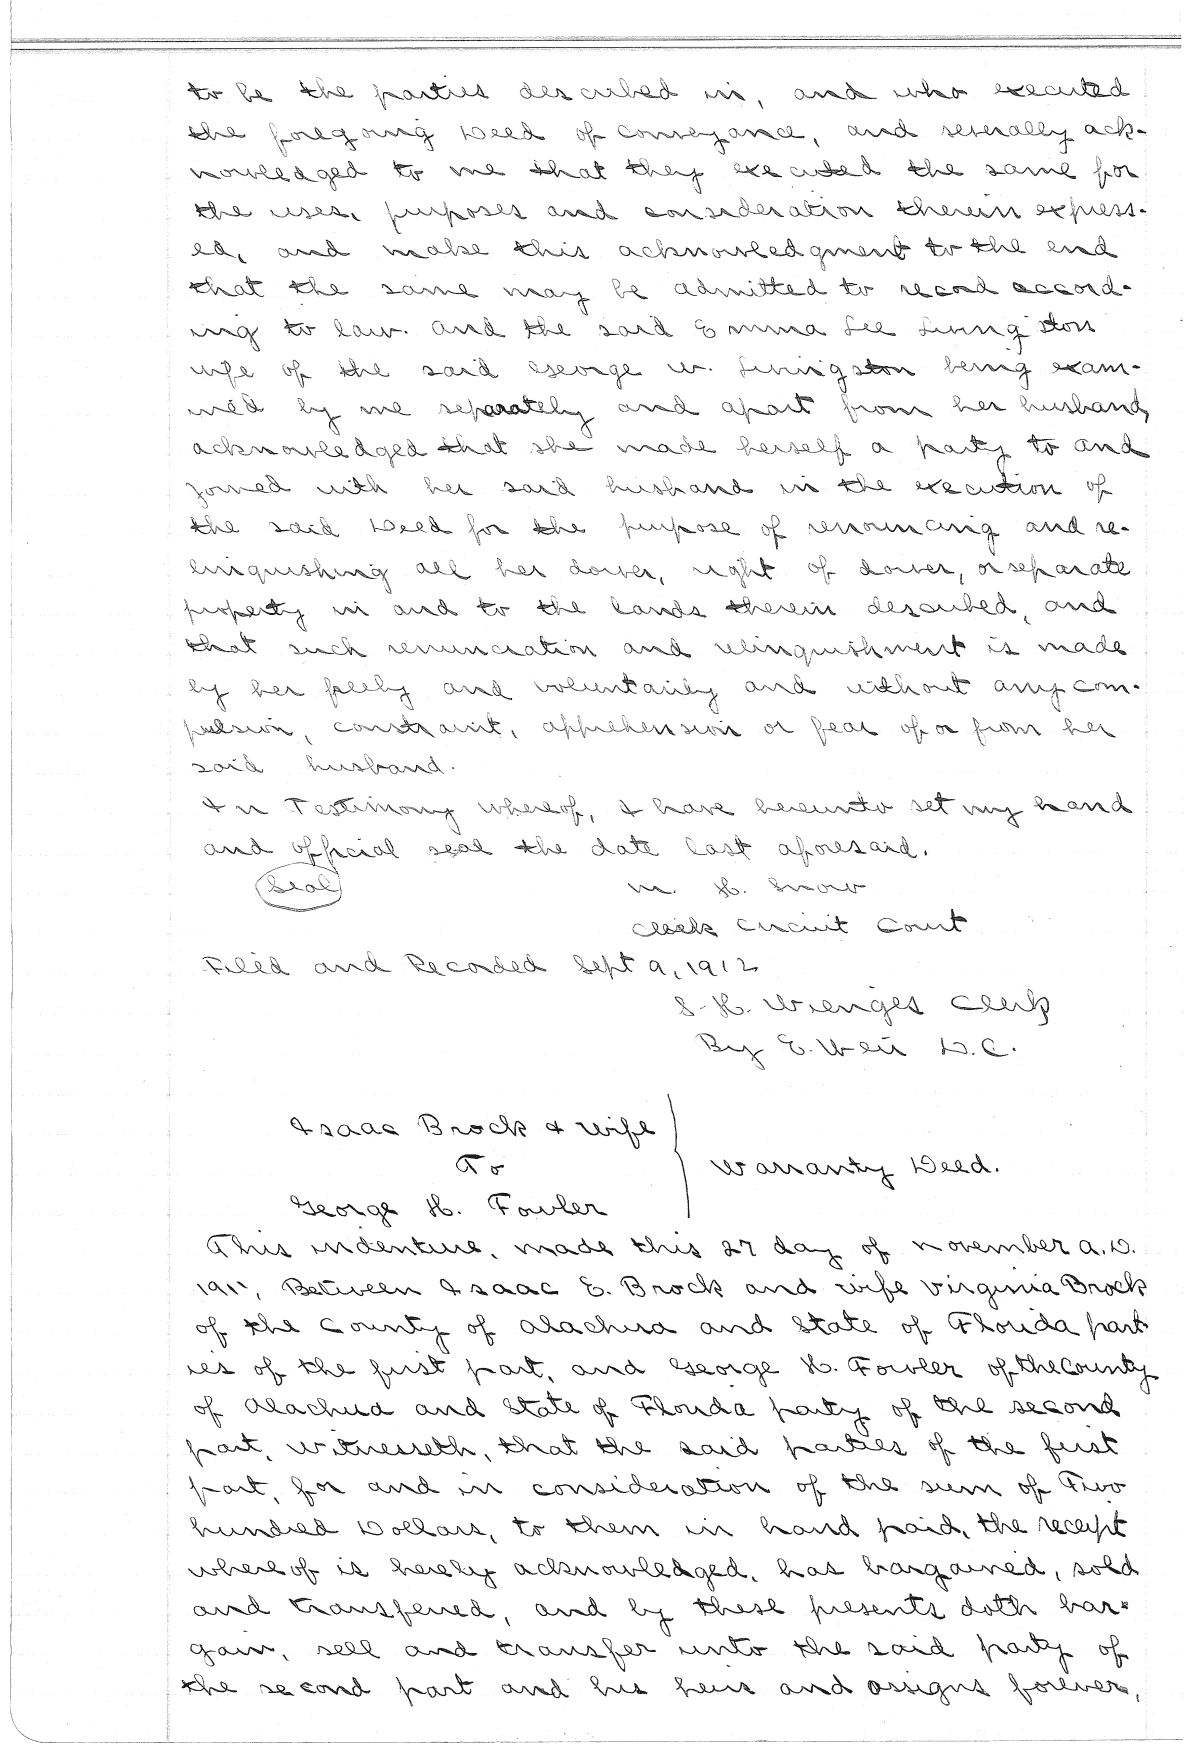 to be the parties described in, and who executed
the foregoing Deed of conveyance, and severally ack-
nowledged to me that they executed the same for
the uses, purposes and consideration therein express-
ed, and make this acknowledgment to the end
that the same may be admitted to record accord-
ing to law. And the said Emma Lee Livingston
wife of the said George W. Livingston being exam-
ined by me separately and apart from her husband,
acknowledged that she made herself a party to and
joined with her said husband in the execution of
the said Deed for the purpose of renouncing and re-
linquishing all her dower, right of dower, or separate
property in and to the lands therein described, and
that such renunciation and relinquishment is made
by her freely and voluntarily and without any com-
pulsion, constraint, apprehension or fear of or from her
said husband.
In Testimony whereof, I have hereunto set my hand
and official seal the date last aforesaid.
Seal M. H. Snow
Clerk Circuit Court
Filed and Recorded Sept 9, 1912
S. H. Wienges Clerk
By E. Weir D.C.
Isaac Brock & wife
To Warranty Deed.
George H. Fowler
This indenture, made this 27 day of November A.D.
1911, Between Isaac E. Brock and wife Virginia Brock
of the County of Alachua and State of Florida part
ies of the first part, and George H. Fowler of the County
of Alachua and State of Florida party of the second
part, witnesseth, that the said parties of the first
part, for and in consideration of the sum of Two
hundred Dollars, to them in hand paid, the receipt
whereof is hereby acknowledged, has bargained, sold
and transferred, and by these presents doth bar-
gain, sell and transfer unto the said party of
the second part and his heirs and assigns forever,